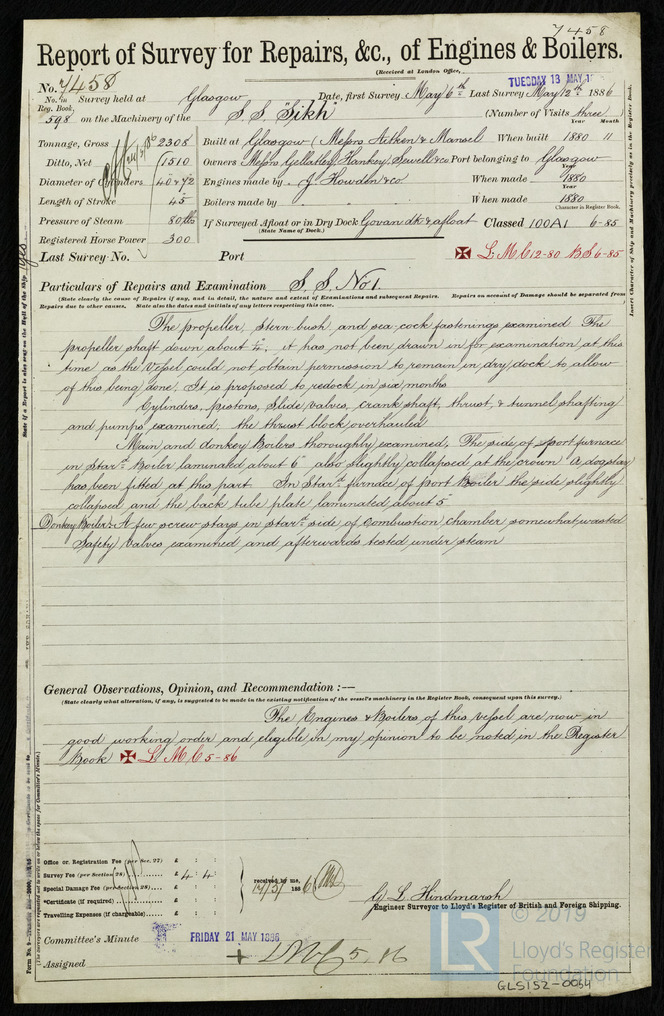 7458
Report of Survey for Repairs, &c., of Engines & Boilers.
(Received at London Office,
TUESDAY 18 MAY 1
No. 7458
No. in Reg. Book. Survey held at Glasgow Date, first Survey May 6th Last Survey May 12th 1886
598 on the Machinery of the S.S. "Sikh" (Number of Visits three)
Year Month
Tonnage, Gross 2308 Built at Glasgow (Messrs Aitken & Mansel When built 1880 11
Ditto, Net 1510 Owners Messrs Gellatley Hankey, Sewell & co Port belonging to Glasgow
Year
Diameter of Cylinders 40 & 72 Engines made by J. Howden & co When made 1880
Year
Length of Stroke 45 Boilers made by When made 1880
Character in Register Book.
Pressure of Steam 80 lbs If Surveyed Afloat or in Dry Dock Govan dk & afloat Classed 100A1 6-85
(State Name of Dock.)
Registered Horse Power 300
Last Survey No. Port L.M.C 12-80 B.S 6-85
Particulars of Repairs and Examination S.S. No 1.
(State clearly the cause of Repairs if any, and in detail, the nature and extent of Examinations and subsequent Repairs. Repairs on account of Damage should be separated from
Repairs due to other causes. State also the dates and initials of any letters respecting this case.
The propeller, stern bush and sea cock fastenings examined The
propeller shaft down about 1/4", it has not been drawn in for examination at this
time as the vessel could not obtain permission to remain in dry dock to allow
of this being done. It is proposed to redock in six months
Cylinders, pistons, slide valves, crank shaft, thrust & tunnel shafting
and pumps examined. the thrust block overhauled
Main and donkey Boilers thoroughly examined. The side of port furnace
in Stard Boiler laminated about 6" also slightly collapsed at the crown A dog stay
has been fitted at this part In Stard furnace of port Boiler the side slightly
collapsed and the back tube plate laminated about 5"
Donkey Boiler:- A few screw stays in Stard side of Combustion chamber somewhat wasted
Safety valves examined and afterwards tested under steam
General Observations, Opinion, and Recommendation :—
(State clearly what alteration, if any, is suggested to be made in the existing notification of the vessel's machinery in the Register Book, consequent upon this survey.)
The Engines & Boilers of this vessel are now in
good working order and eligible in my opinion to be noted in the Register
Book L.M.C 5-86
Office or Registration Fee (per Sec. 27) £ : :
Survey Fee (per Section 28) £ 4 : 4 :
Special Damage Fee (per Section 28) £ : :
*Certificate (if required) £ : :
Travelling Expenses (if chargeable) £ : :
received by me,
17/5/ 1886
G L Hindmarsh
Engineer Surveyor to Lloyd's Register of British and Foreign Shipping.
Committee's Minute FRIDAY 21 MAY 1886
Assigned + LMC 5,86
© 2019
LR
Lloyd's Register
Foundation
GLS152-0054